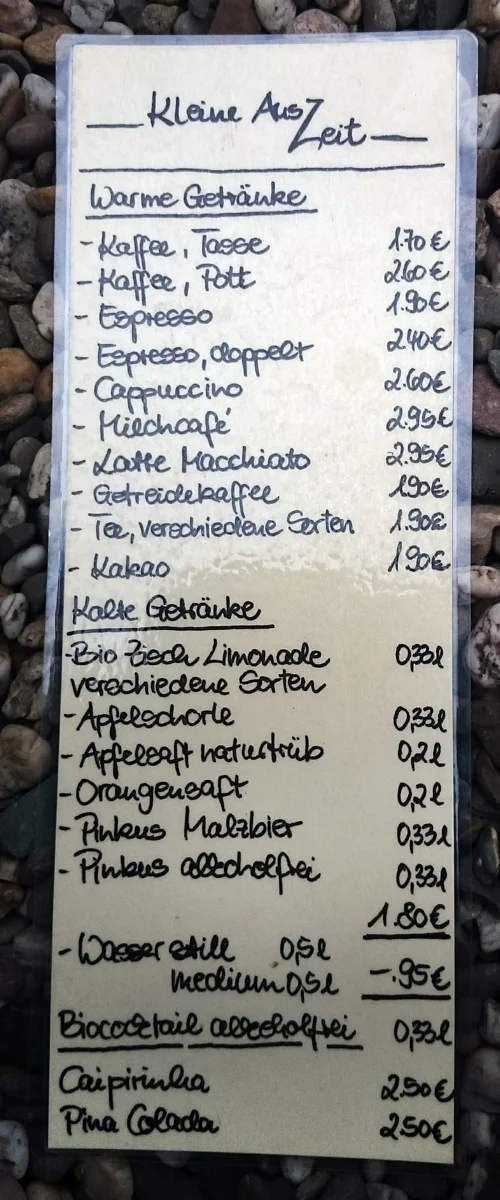 Kleine AusZeit
Warme Getränke
- Kaffee, Tasse 1.70€
- Kaffee, Pott 2.60€
- Espresso 1.90€
- Espresso, doppelt 2.40€
- Cappuccino 2.60€
- Milchcafé 2.95€
- Latte Macchiato 2.95€
- Getreidekaffee 1.90€
- Tee, verschiedene Sorten 1.90€
- Kakao 1.90€
Kalte Getränke
- Bio Zisch Limonade 0,33l
verschiedene Sorten
- Apfelschorle 0,33l
- Apfelsaft naturtrüb 0,2l
- Orangensaft 0,2l
- Pinkus Malzbier 0,33l
- Pinkus alkoholfrei 0,33l
1.80€
- Wasser still 0,5l
medium 0,5l -.95€
Biococktail alkoholfrei 0,33l
Caipirinha 2.50€
Pina Colada 2.50€